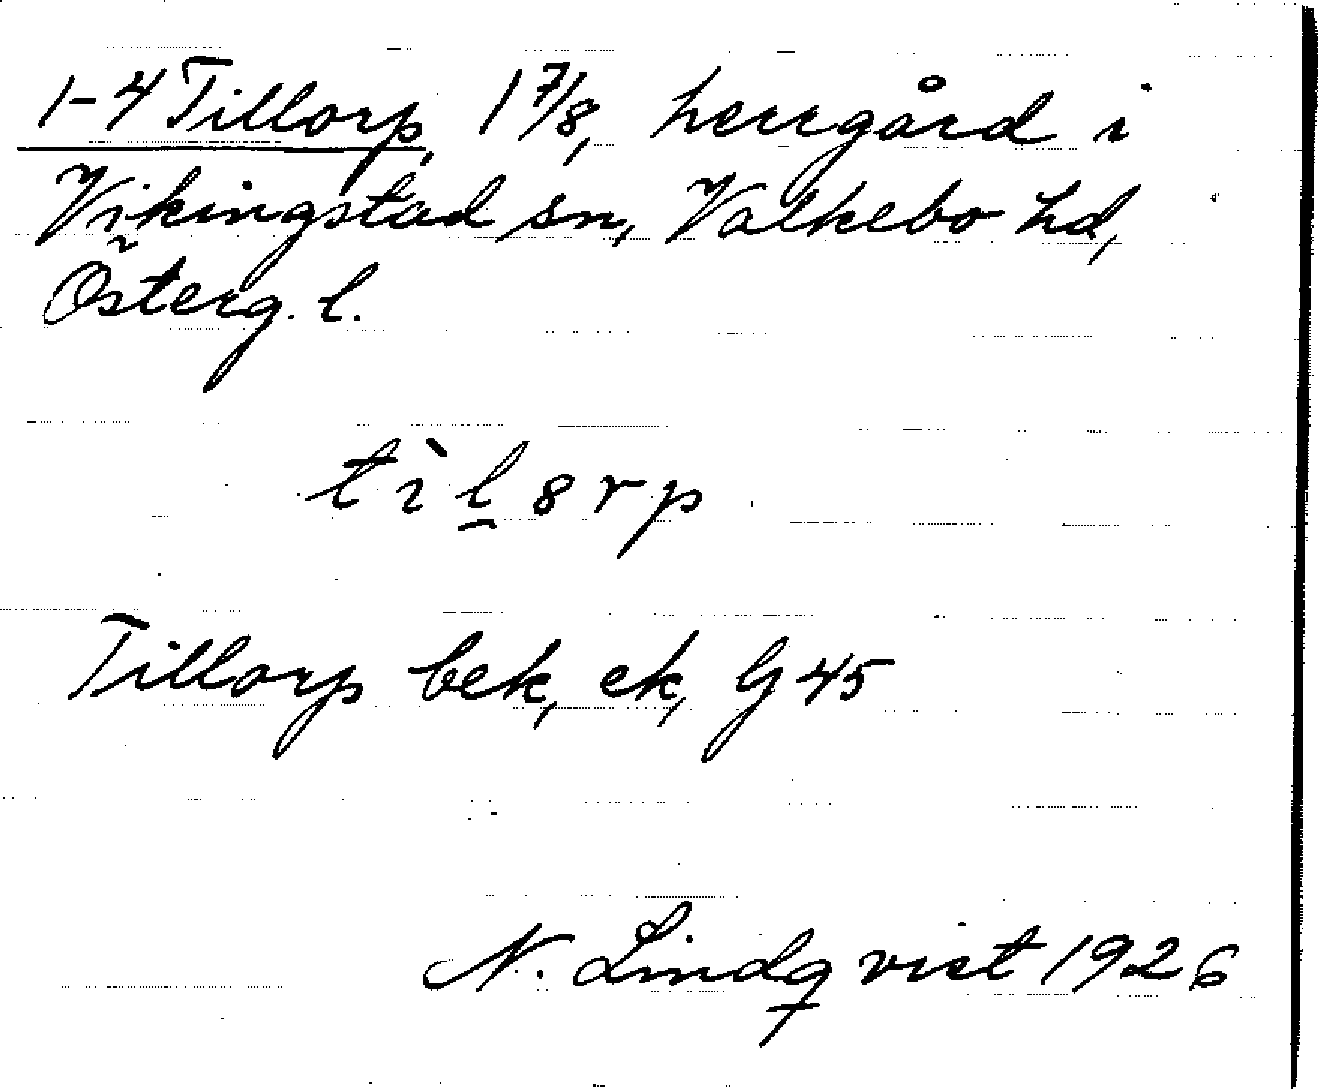 1-4 Tillorp, 1 7/8, herrgård i
Vikingstad sn, Valkebo hd,
Österg. l.
tìl̲8rp
Tillorp bek, ek, G 45
N. Lindqvist 1926